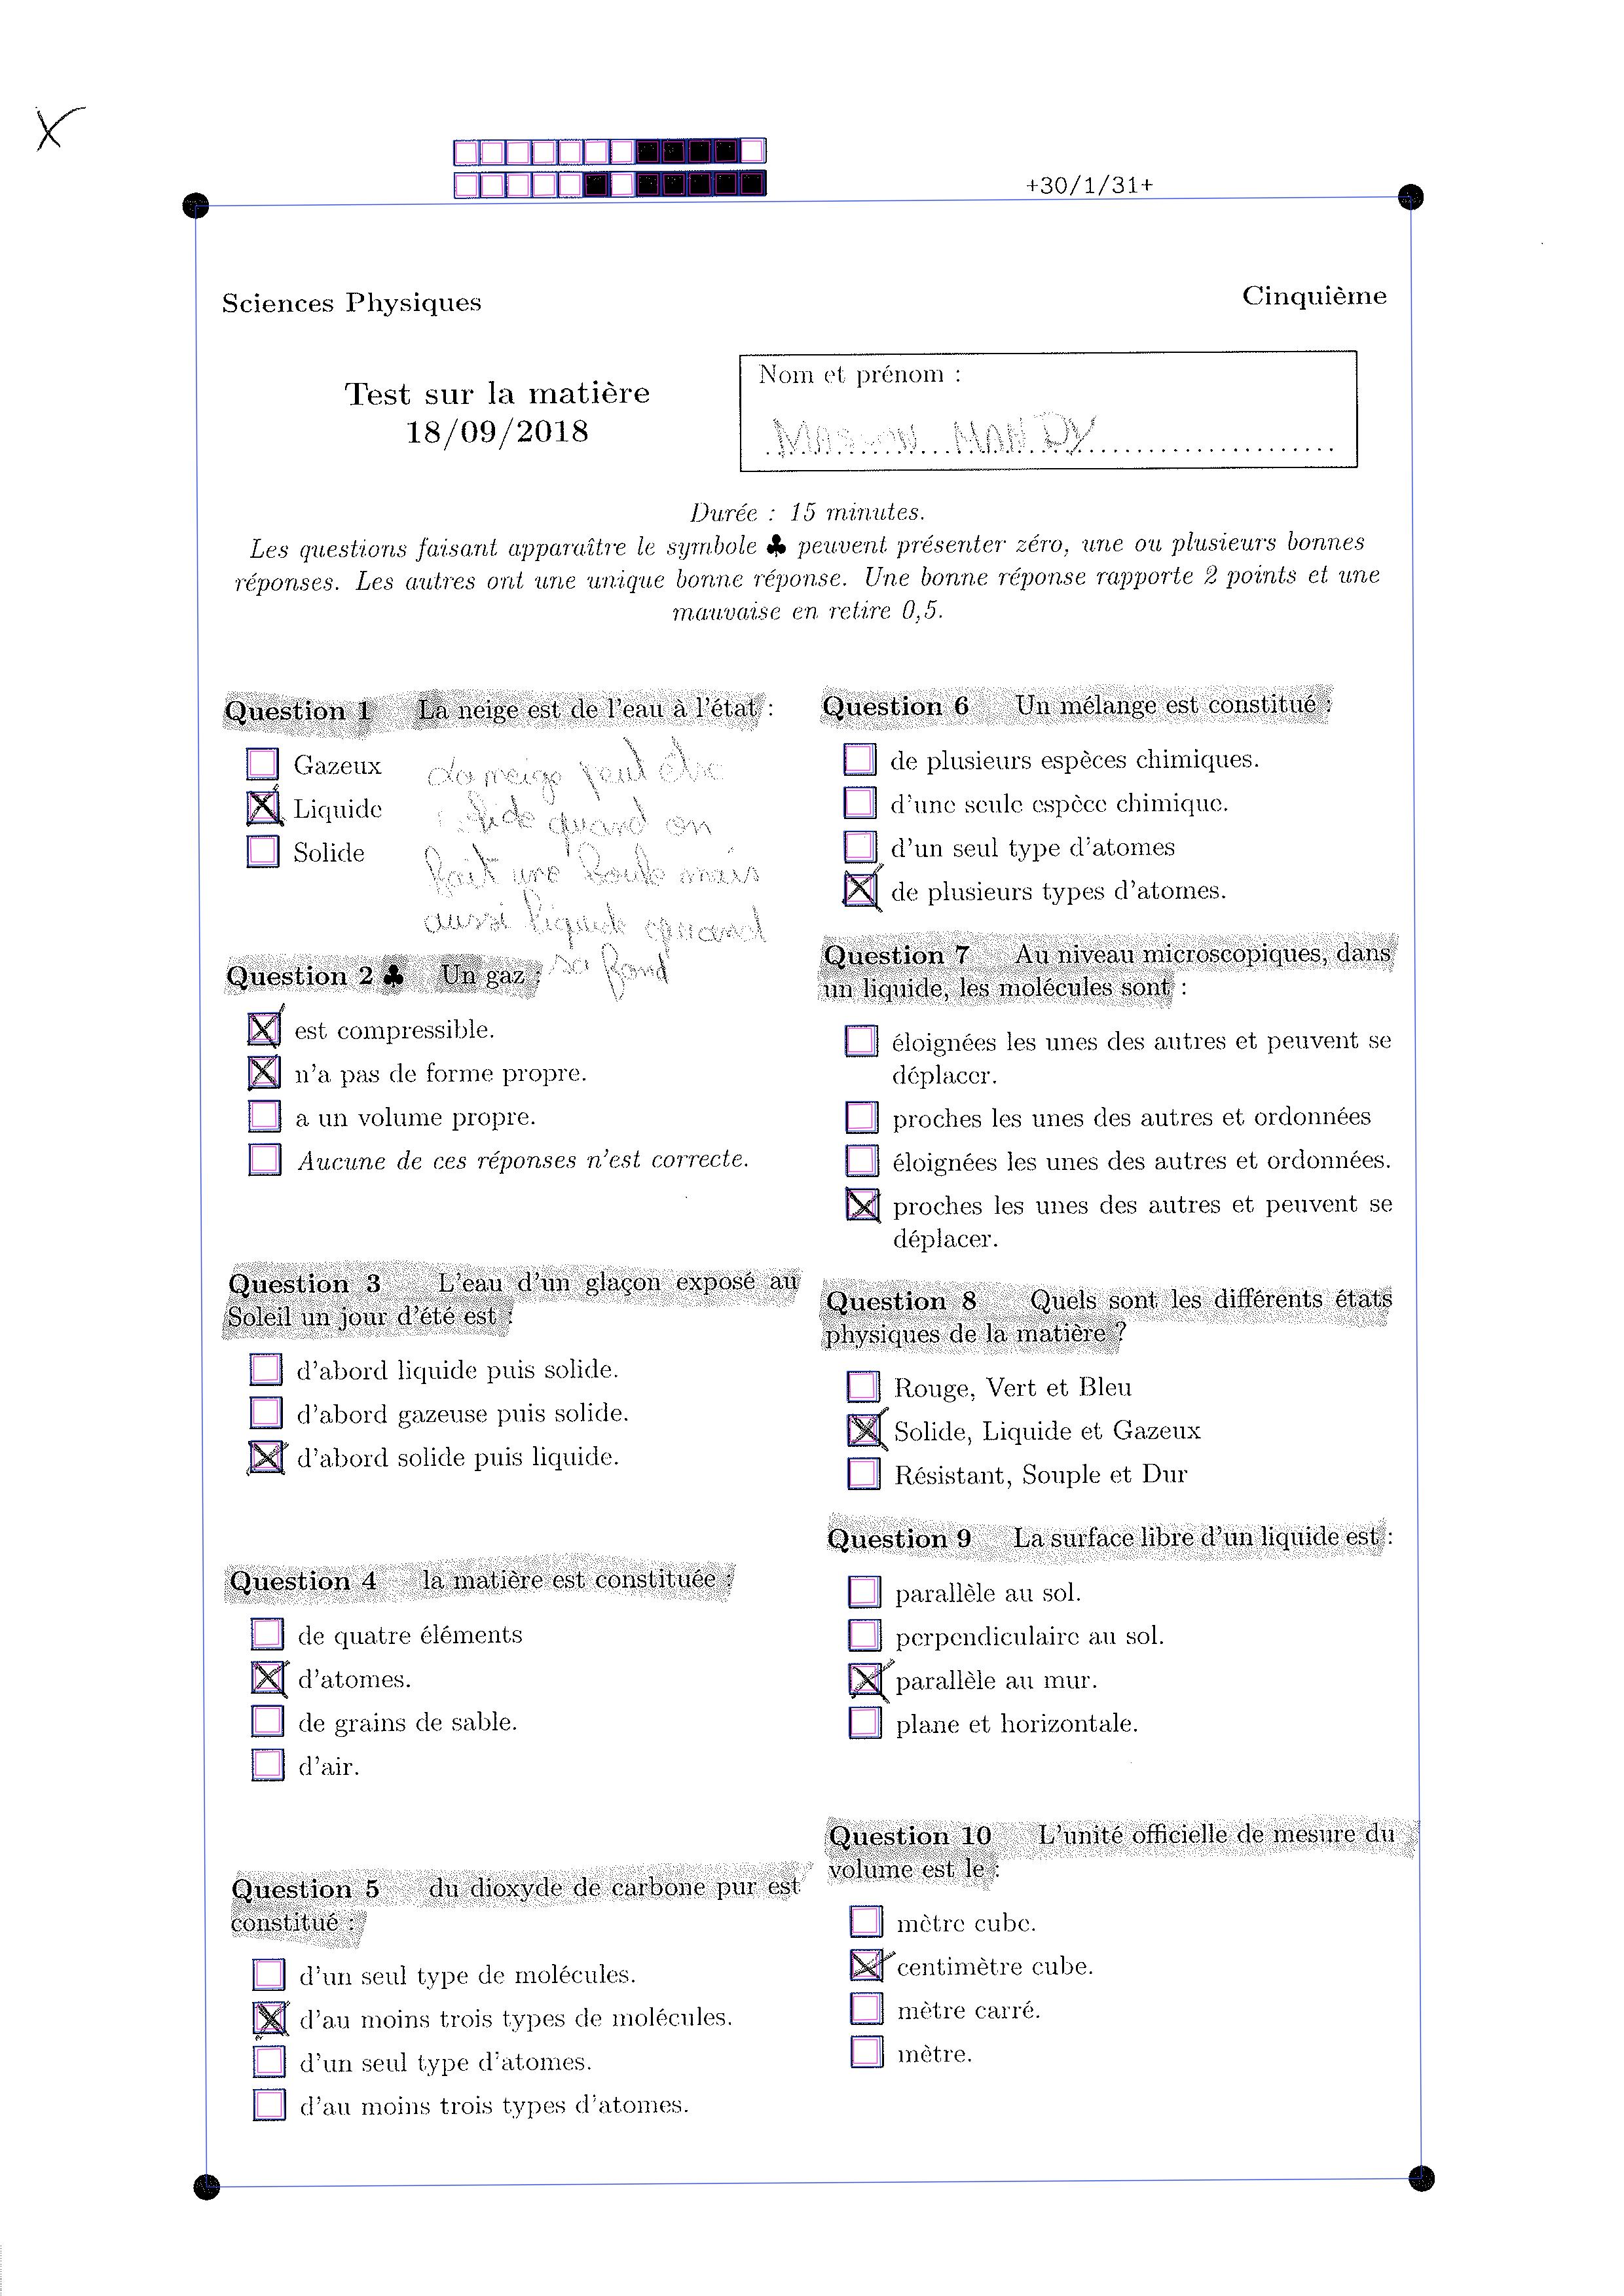 +30/1/31+
Sciences Physiques
Cinquième
Test sur la matière
18/09/2018
Nom et prénom :
MANDY
Durée : 15 minutes.
Les questions faisant apparaître le symbole ♣ peuvent présenter zéro, une ou plusieurs bonnes
réponses. Les autres ont une unique bonne réponse. Une bonne réponse rapporte 2 points et une
mauvaise en retire 0,5.
Question 1 La neige est de l'eau à l'état :
Gazeux
Liquide
Solide
La neige peut être
solide quand on
fait une boule mais
aussi liquide quand
sa fond
Question 2 ♣ Un gaz :
est compressible.
n'a pas de forme propre.
a un volume propre.
Aucune de ces réponses n'est correcte.
Question 3 L'eau d'un glaçon exposé au
Soleil un jour d'été est :
d'abord liquide puis solide.
d'abord gazeuse puis solide.
d'abord solide puis liquide.
Question 4 la matière est constituée :
de quatre éléments
d'atomes.
de grains de sable.
d'air.
Question 5 du dioxyde de carbone pur est
constitué :
d'un seul type de molécules.
d'au moins trois types de molécules.
d'un seul type d'atomes.
d'au moins trois types d'atomes.
Question 6 Un mélange est constitué :
de plusieurs espèces chimiques.
d'une seule espèce chimique.
d'un seul type d'atomes
de plusieurs types d'atomes.
Question 7 Au niveau microscopiques, dans
un liquide, les molécules sont :
éloignées les unes des autres et peuvent se
déplacer.
proches les unes des autres et ordonnées
éloignées les unes des autres et ordonnées.
proches les unes des autres et peuvent se
déplacer.
Question 8 Quels sont les différents états
physiques de la matière ?
Rouge, Vert et Bleu
Solide, Liquide et Gazeux
Résistant, Souple et Dur
Question 9 La surface libre d'un liquide est :
parallèle au sol.
perpendiculaire au sol.
parallèle au mur.
plane et horizontale.
Question 10 L'unité officielle de mesure du
volume est le :
mètre cube.
centimètre cube.
mètre carré.
mètre.